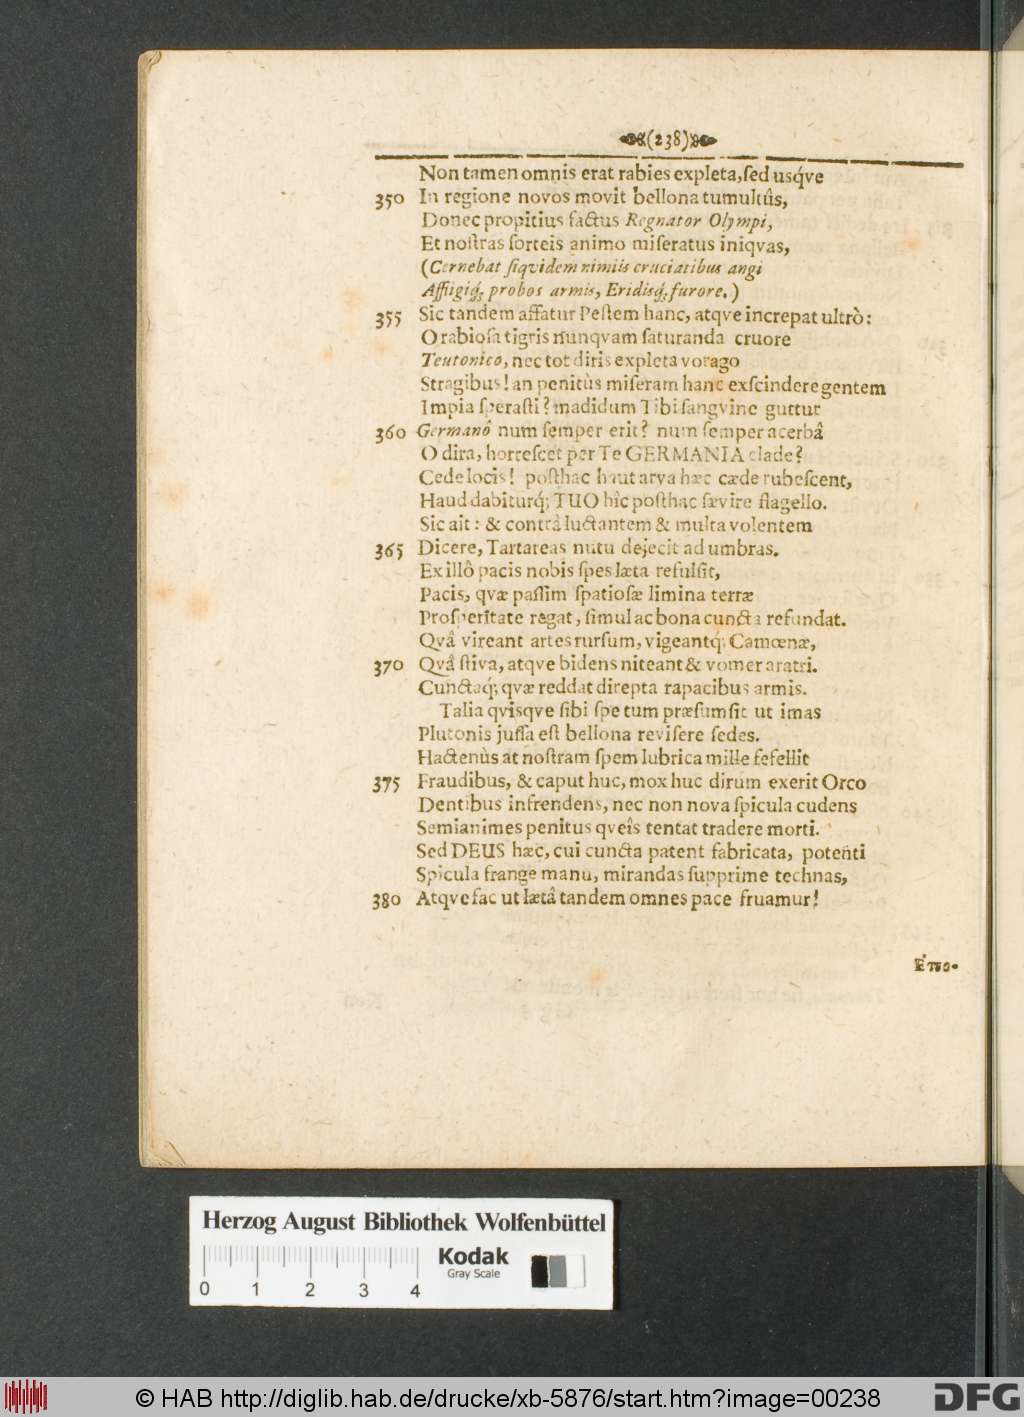 (238)
Non tamen omnis erat rabies expleta, sed usq́ve
350 In regione novos movit bellona tumultûs,
Donec propitius factus Regnator Olympi,
Et nostras sorteis animo miseratus iniqvas,
(Cernebat siqvidem nimiis cruciatibus angi
Affligiq́; probos armis, Eridisq́; furore.)
355 Sic tandem affatur Pestem hanc, atqve increpat ultrò:
O rabiosa tigris nunqvam saturanda cruore
Teutonico, nec tot diris expleta vorago
Stragibus! an penitùs miseram hanc exscindere gentem
Impia sperasti? madidum Tibi sangvine guttur
360 Germanô num semper erit? num semper acerbâ
O dira, horrescet per Te GERMANIA clade?
Cede locis! posthac haut arva hæc cæde rubescent,
Haud dabiturq́; TUO hîc posthac sævire flagello.
Sic ait: & contrà luctantem & multa volentem
365 Dicere, Tartareas nutu dejecit ad umbras.
Ex illô pacis nobis spes læta refulsit,
Pacis, qvæ passim spatiosæ limina terræ
Prosperitate regat, simul ac bona cuncta refundat.
Qvâ vireant artes rursum, vigeantq́; Camœnæ,
370 Qvâ stiva, atqve bidens niteant & vomer aratri.
Cunctaq́; qvæ reddat direpta rapacibus armis.
Talia qvisqve sibi spe tum præsumsit ut imas
Plutonis jussa est bellona revisere sedes.
Hactenùs at nostram spem lubrica mille fefellit
375 Fraudibus, & caput huc, mox huc dirum exerit Orco
Dentibus infrendens, nec non nova spicula cudens
Semianimes penitus qveîs tentat tradere morti.
Sed DEUS hæc, cui cuncta patent fabricata, potenti
Spicula frange manu, mirandas supprime technas,
380 Atqve fac ut lætâ tandem omnes pace fruamur!
Herzog August Bibliothek Wolfenbüttel
Kodak
Gray Scale
0 1 2 3 4
© HAB http://diglib.hab.de/drucke/xb-5876/start.htm?image=00238
DFG